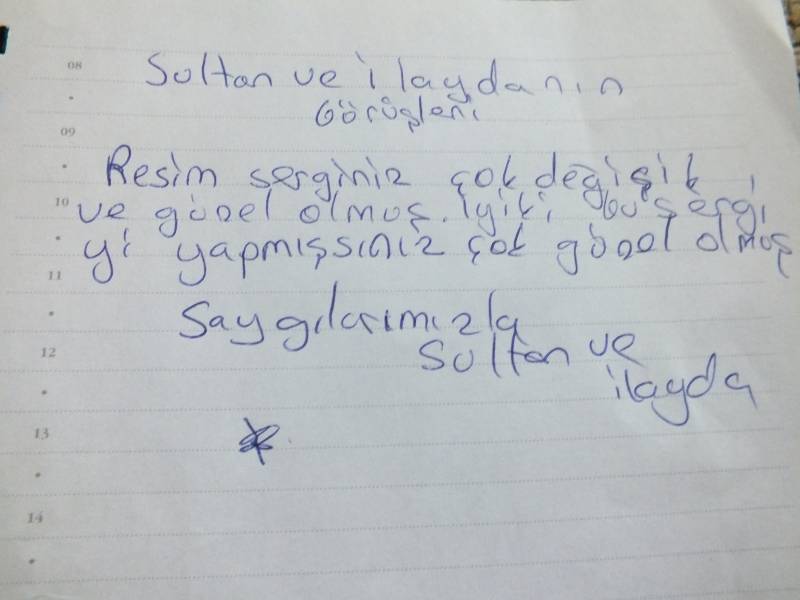 08
Sultan ve ilaydanın
Görüşleri
09
Resim serginiz çok değişik
10
ve güzel olmuş. İyiki bu sergi
yi yapmışsınız çok güzel olmuş
11
Saygılarımızla
12
Sultan ve
ilayda
13
14